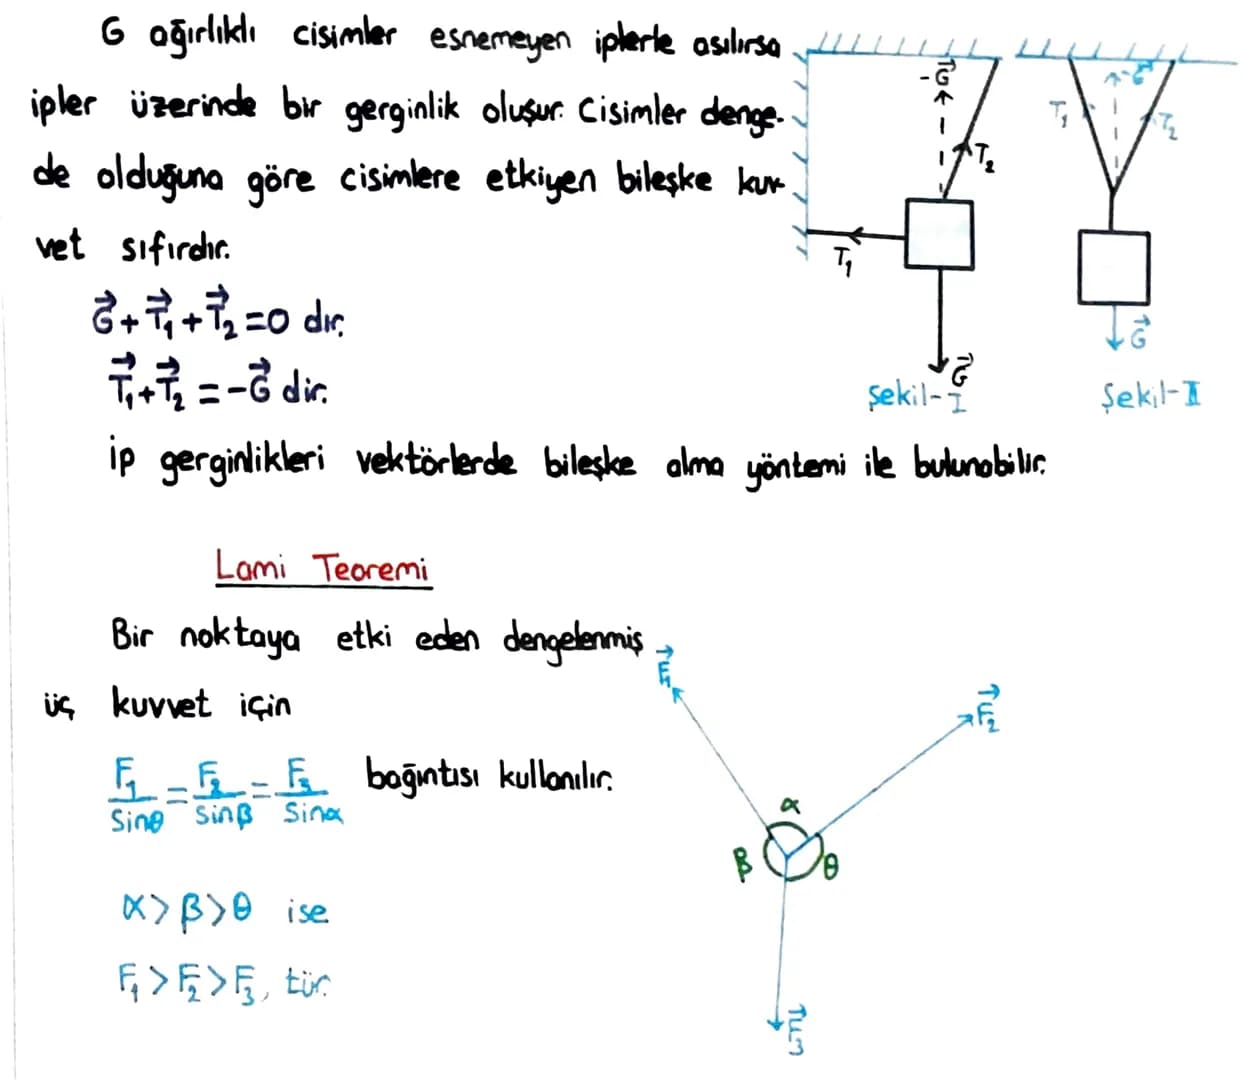 G ağırlıklı cisimler esnemeyen iplerle asılırsa
ipler üzerinde bir gerginlik oluşur. Cisimler denge-
de olduğuna göre cisimlere etkiyen bileşke kuv-
vet sıfırdır.
G⃗ + T⃗₁ + T⃗₂ = 0 dır.
T⃗₁ + T⃗₂ = -G⃗ dir.
-G⃗
T₂
T₁
G⃗
Şekil-I
-G⃗
T₁
T₂
G⃗
Şekil-II
İp gerginlikleri vektörlerde bileşke alma yöntemi ile bulunabilir.
Lami Teoremi
Bir noktaya etki eden dengelenmiş
üç kuvvet için
F₁/Sinθ = F₂/Sinβ = F₃/Sinα bağıntısı kullanılır.
α > β > θ ise
F₁ > F₂ > F₃, tür.
F⃗₁
F⃗₂
α
β
θ
F⃗₃